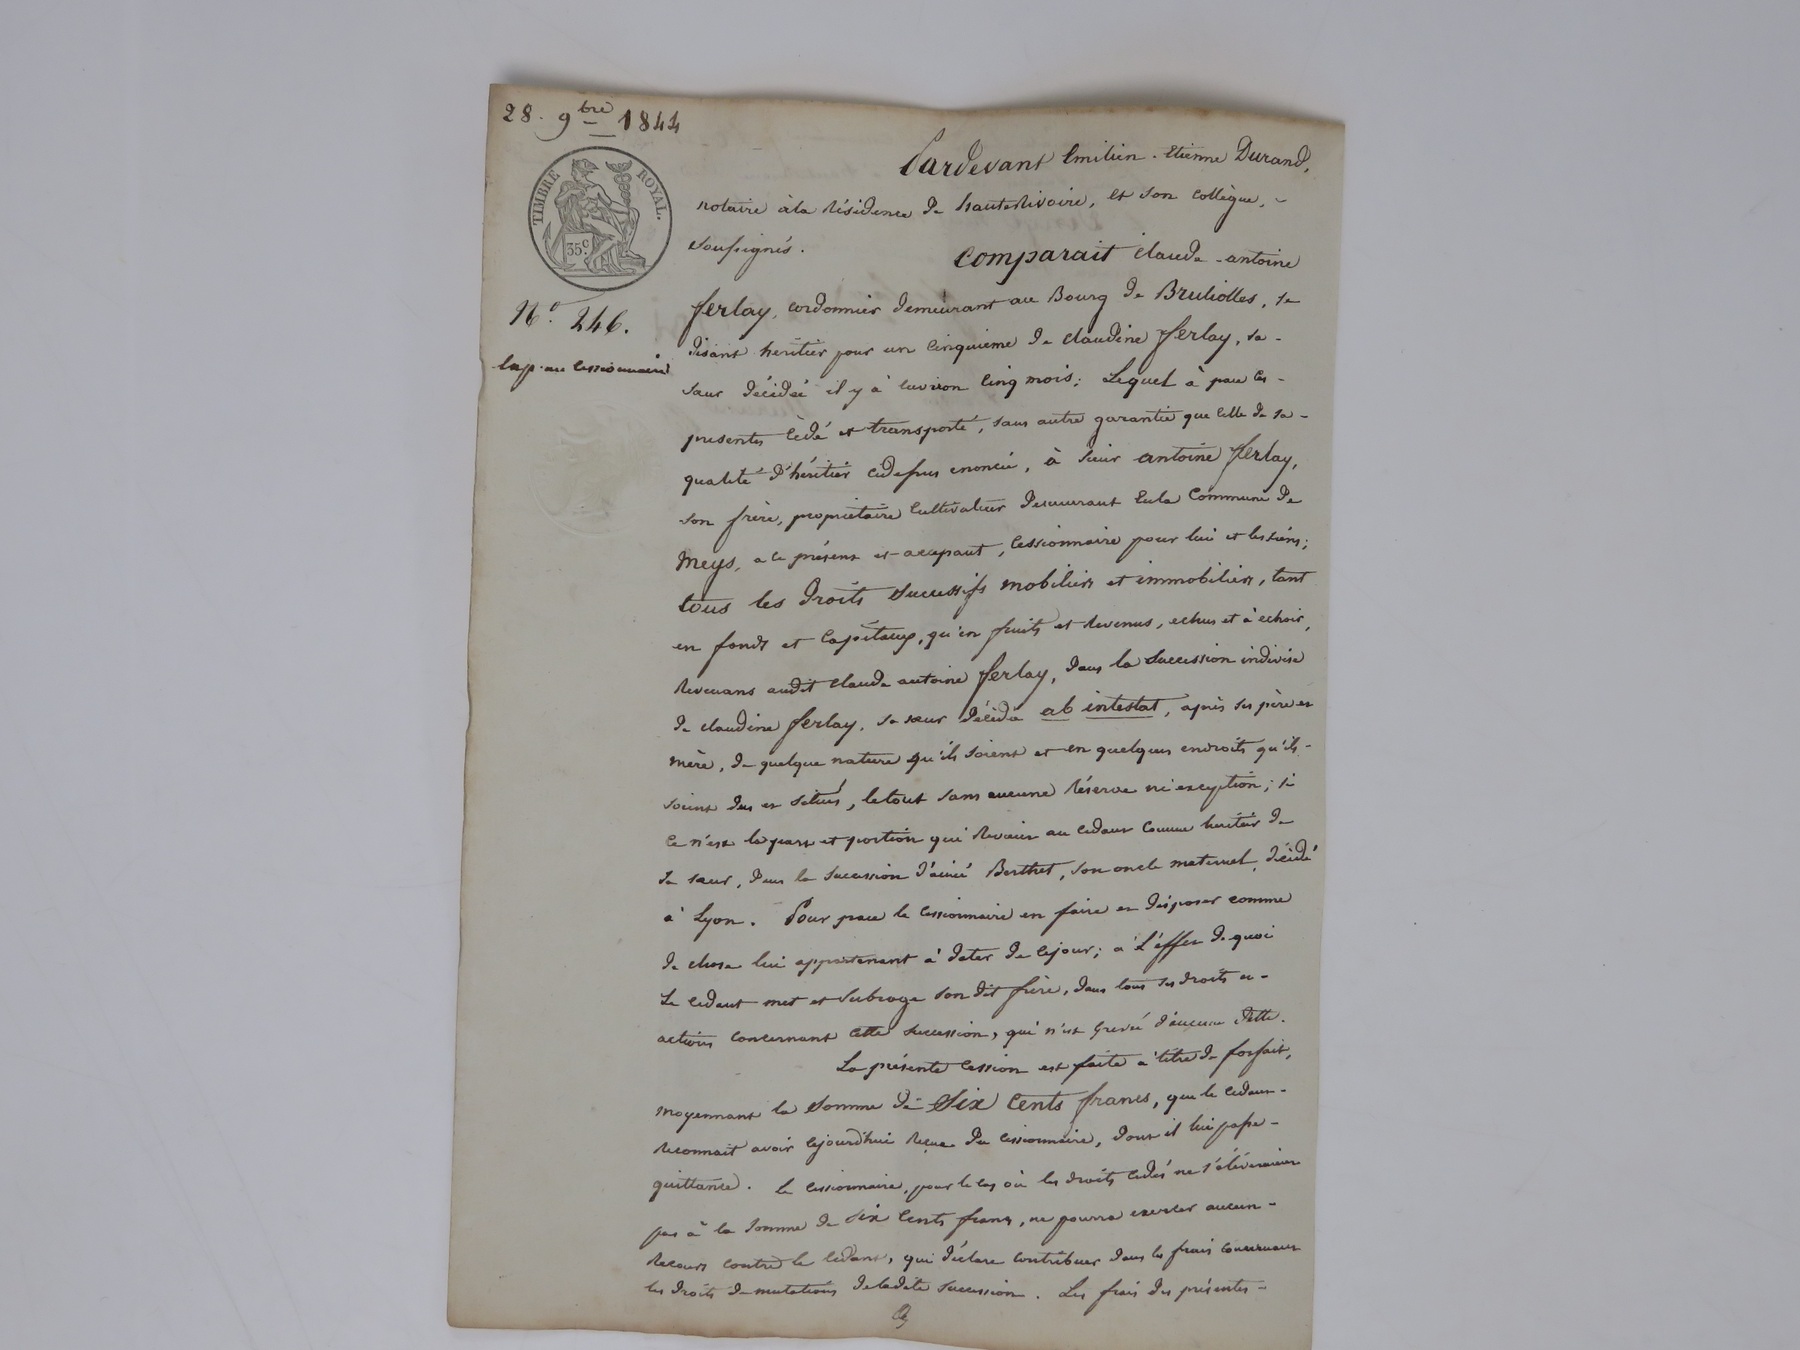 28. 9bre 1844
TIMBRE ROYAL.
35c.
No. 246.
Exp. au cessionnaire
Pardevant Emilien-Etienne Durand,
notaire à la Résidence de hauteRivoire, et son collègue,
soussignés.
Comparait claude-antoine
ferlay, cordonnier demeurant au Bourg de Bruliolles, se
disant heritier pour un Cinquième de Claudine ferlay, sa
sœur décédée il y a Environ Cinq mois; Lequel à par Ces
presentes Cédé et transporté, sans autre garantie que Celle de sa
qualité d'héritier cidessus enoncée, à sieur antoine ferlay,
son frère, propriétaire Cultivateur demeurant En la Commune de
Meys, a ce présent et acceptant, Cessionnaire pour lui et les siens;
tous les Droits Successifs mobiliers et immobiliers, tant
en fonds et Capitaux, qu'en fruits et Revenus, echus et à echoir,
Revenans audit Claude antoine ferlay, dans la Succession indivise
de claudine ferlay, sa sœur décédée ab intestat, après ses père et
mère, de quelque nature qu'ils soient et en quelques endroits qu'ils
soient dus et situés, le tout sans aucune Réserve ni exception; si
Ce n'est la part et portion qui Revient au cedant comme heritier de
sa sœur, dans la Succession d'aimé Berthet, son oncle maternel, décédé
à Lyon. Pour par le cessionnaire en faire et disposer comme
de chose lui appartenant à dater de Cejour; à L'effet de quoi
Le cedant met et Subroge son dit frère, dans tous ses droits et
actions concernant cette succession, qui n'est Grevée d'aucune dette.
La présente Cession est faite à titre de forfait,
moyennant la Somme de Six Cents francs, que le cedant
Reconnait avoir Cejourd'hui Reçue du Cessionnaire, dont il lui passe
quittance. Le Cessionnaire, pour le cas où les droits Cédés ne s'élèveraient
pas à la Somme de Six Cents francs, ne pourra exercer aucun
Recours contre le Cedant, qui déclare contribuer dans les frais concernant
les droits de mutations de ladite Succession. Les frais des présentes